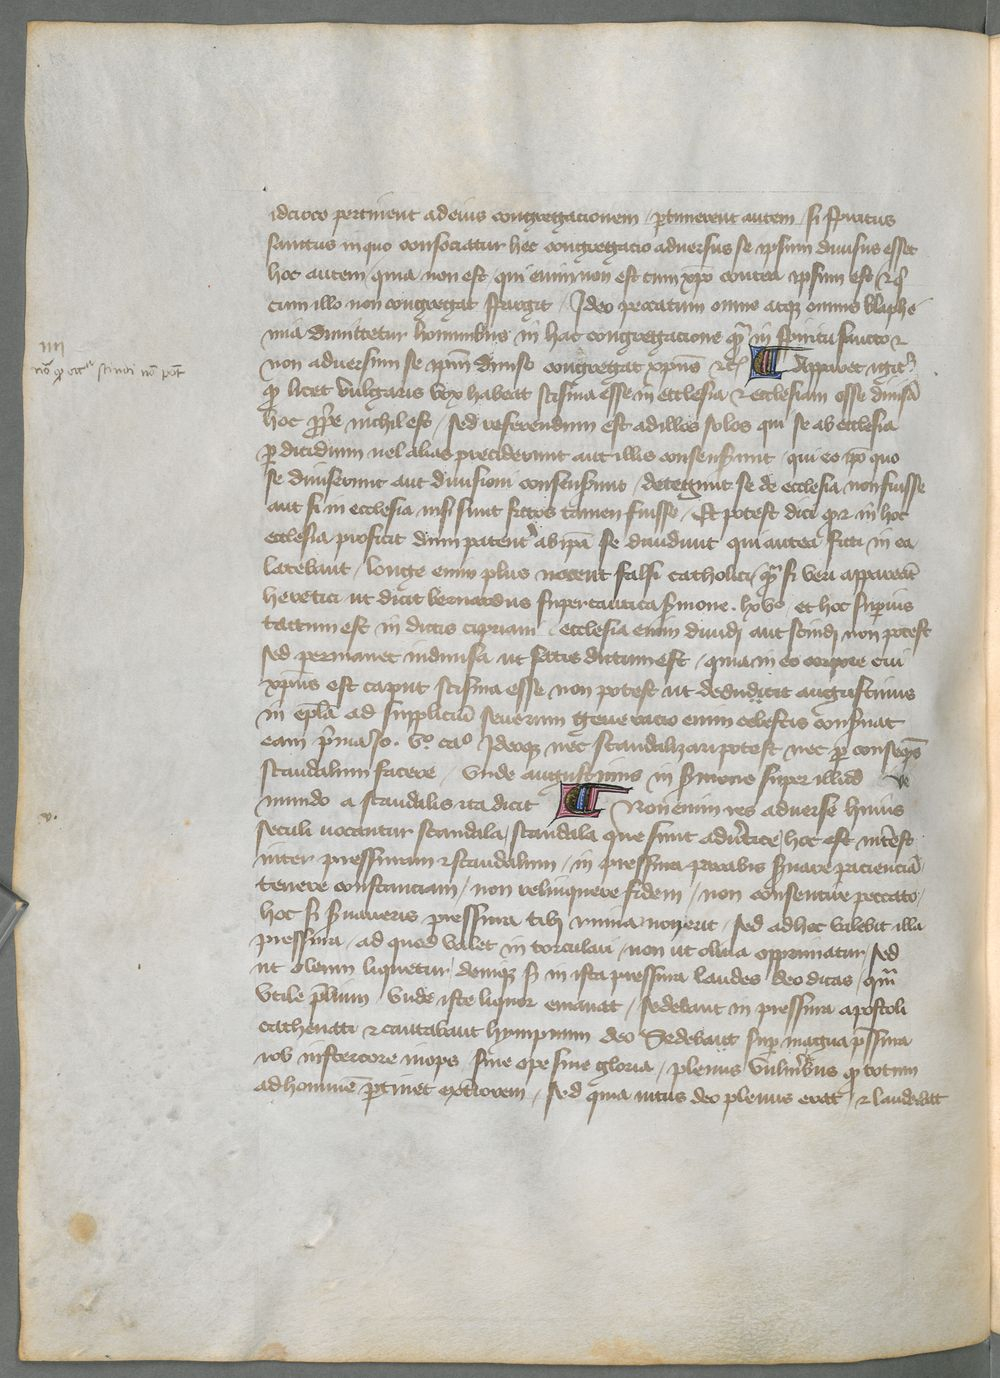 idcirco pertinent ad eius congregacionem / ptinerent autem / si spiritus
sanctus in quo consociatur hec congregacio adversus se ipsum divisus esset
hoc autem quia non est / qui enim non est cum xpo contra ipsum est et q̄
cum illo non congregat spargit / Ideo peccatum omne atque omnis blasphe
mia dimittetur hominibus in hac congregacione quā in spiritu sancto et
non adversum se ipm̄ diviso congregat xpūs etc̄ Apparet igitr
qd licet vulgaris vox habeat scisma esse in ecclesia et ecclesiam esse divisā
hoc ppe nichil est / sed referendum est ad illos solos qui se ab ecclesia
p dicidium uel alias preciderunt aut illis consenserunt / qui eo ipo quo
se diviserunt aut divisioni consenserunt / detegunt se de ecclesia non fuisse
aut si in ecclesia visi sunt fictos tamen fuisse / Et potest dici qd in hoc
ecclesia proficit dum patentr ab ipā se dividunt qui antea ficti in ea
latebant / longe enim plus nocent falsi catholici / quā si veri appareāt
heretici ut dicit bernardus super cantica smone . lxvo . et hoc superius
tactum est in dictis cipriani / ecclesia enim dividi aut scindi non potest
sed permanet indivisa ut satis dictum est / quia in eo corpore cui
xpūs est caput scisma esse non potest ut dedudicit augustinus
in epl̄a ad simpliciū severum generacio enim celestis conservat
eam
Ideoque nec scandalizari potest nec p conseqns
scandalum facere / vnde augustinus in smone super illud ve
mundo a scandalis ita dicit Non enim res adverse huius
seculi vocantur scandala / scandala que sunt advtice / hoc est intest
inter pressuram et scandalum / in pressura parabis servare pacienciā
tenere constanciam / non relinquere fidem / non consentire peccato /
hoc si servaveris pressura tibi ruina non erit / sed ad hoc valebit illa
pressura / ad quod valet in torculari / non ut oliva opprimatur / sed
ut oleum liquetur / denique si in ista pressura laudes deo dicas / qm̄
vtile plum vnde iste liquor emanat / Sedebant in pressura apostoli
cathenati et cantabant hympnum deo Sedebat sup magna pssura
iob in stercore inops / sine ope sine gloria / plenus vulneribus qd totum
ad hominē ptinet exteriorem / Sed quia intus deo plenus erat / et laudabat